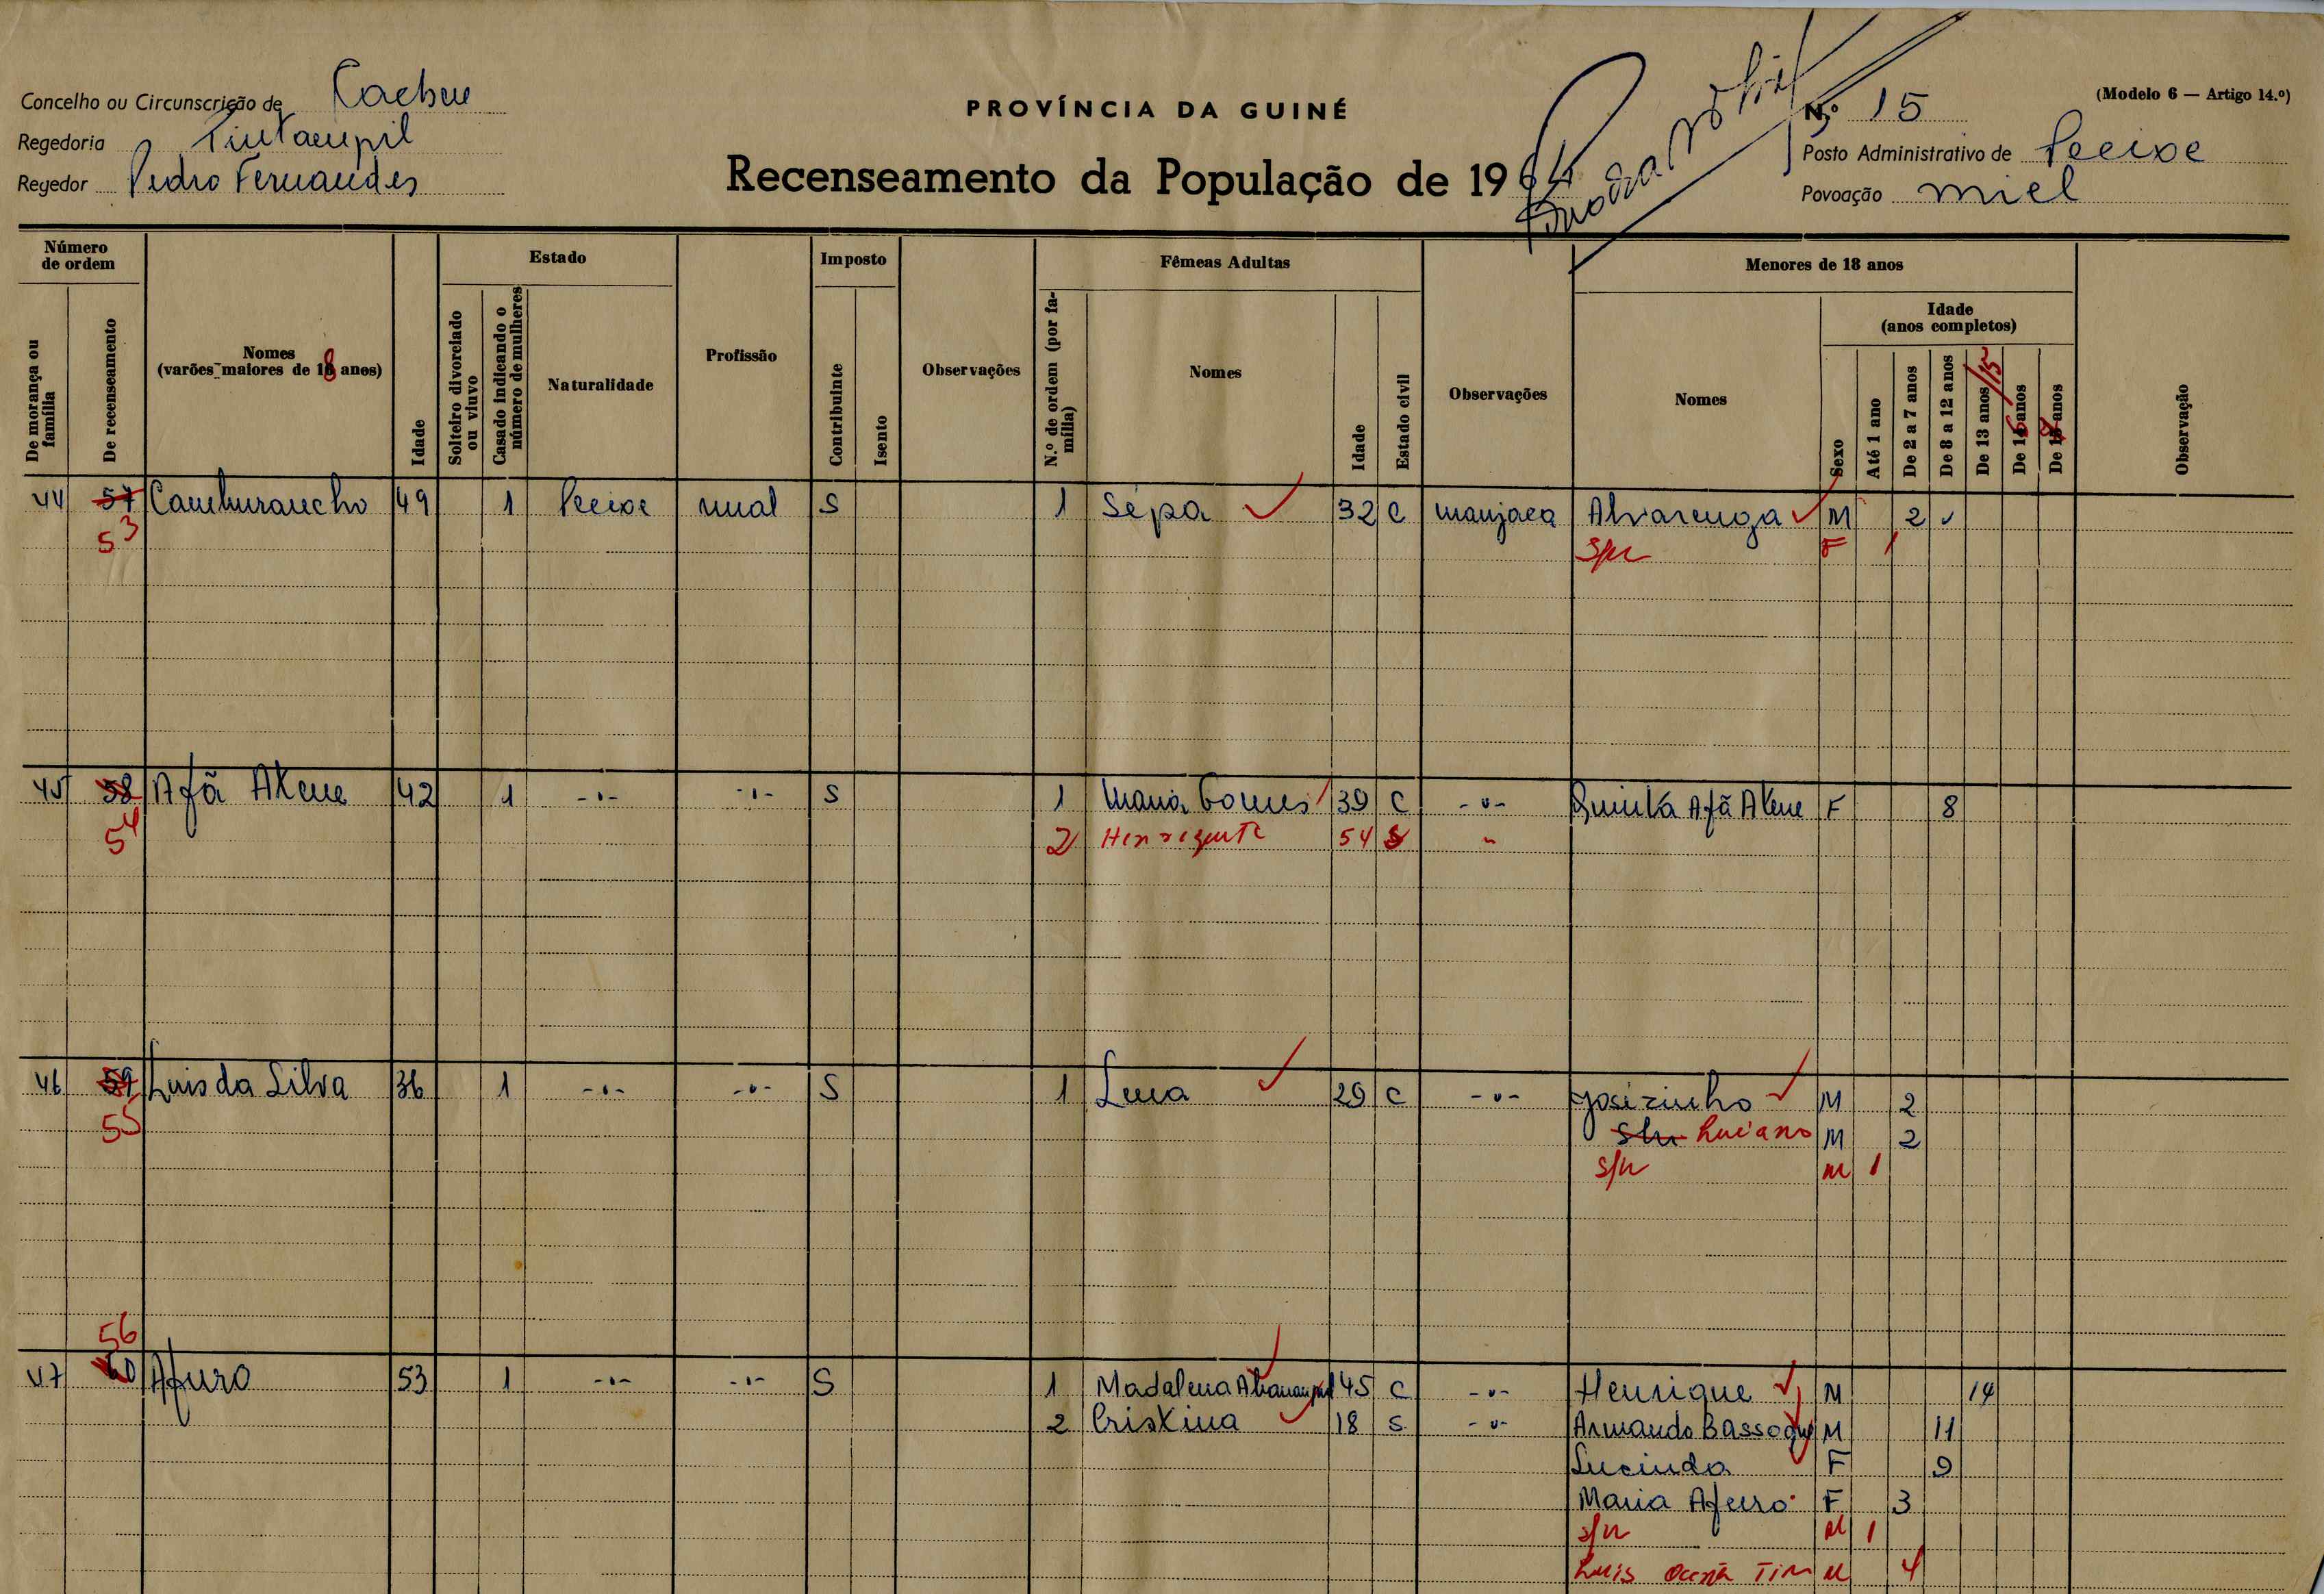 Concelho ou Circunscrição de Cacheu
Regedoria Tintampil
Regedor Pedro Fernandes
PROVÍNCIA DA GUINÉ
Recenseamento da População de 1964
(Modelo 6 — Artigo 14.º)
N.º 15
Posto Administrativo de Pecixe
Povoação Miel
Número de ordem
De morança ou família
De recenseamento
Nomes (varões maiores de 18 anos)
Idade
Estado
Solteiro divorciado ou viuvo
Casado indicando o número de mulheres
Naturalidade
Profissão
Imposto
Contribuinte
Isento
Observações
Fêmeas Adultas
N.º de ordem (por família)
Nomes
Idade
Estado civil
Observações
Menores de 18 anos
Nomes
Sexo
Idade (anos completos)
Até 1 ano
De 2 a 7 anos
De 8 a 12 anos
De 13 anos /15
De 16 anos
De 17 anos
Observação
44 57 Camburancho 49 1 Pecixe rural S 1 Sépa 32 C manjaca Alvarenga M 2
53 s/n F 1
45 58 Afã Atene 42 1 -"- -"- S 1 Maria Gomes 39 C -"- Quinta Afã Atene F 8
54 2 54 S "
46 59 Luis da Silva 36 1 -"- -"- S 1 Lena 29 C -"- Josézinho M 2
55 s/n Luciano M 2
s/n M 1
56
47 60 Afuro 53 1 -"- -"- S 1 Madalena 45 C -"- Henrique M 14
2 Cristina 18 S -"- Armando M 11
Lucinda F 9
Maria Afuro F 3
s/n M 1
Luis M 4